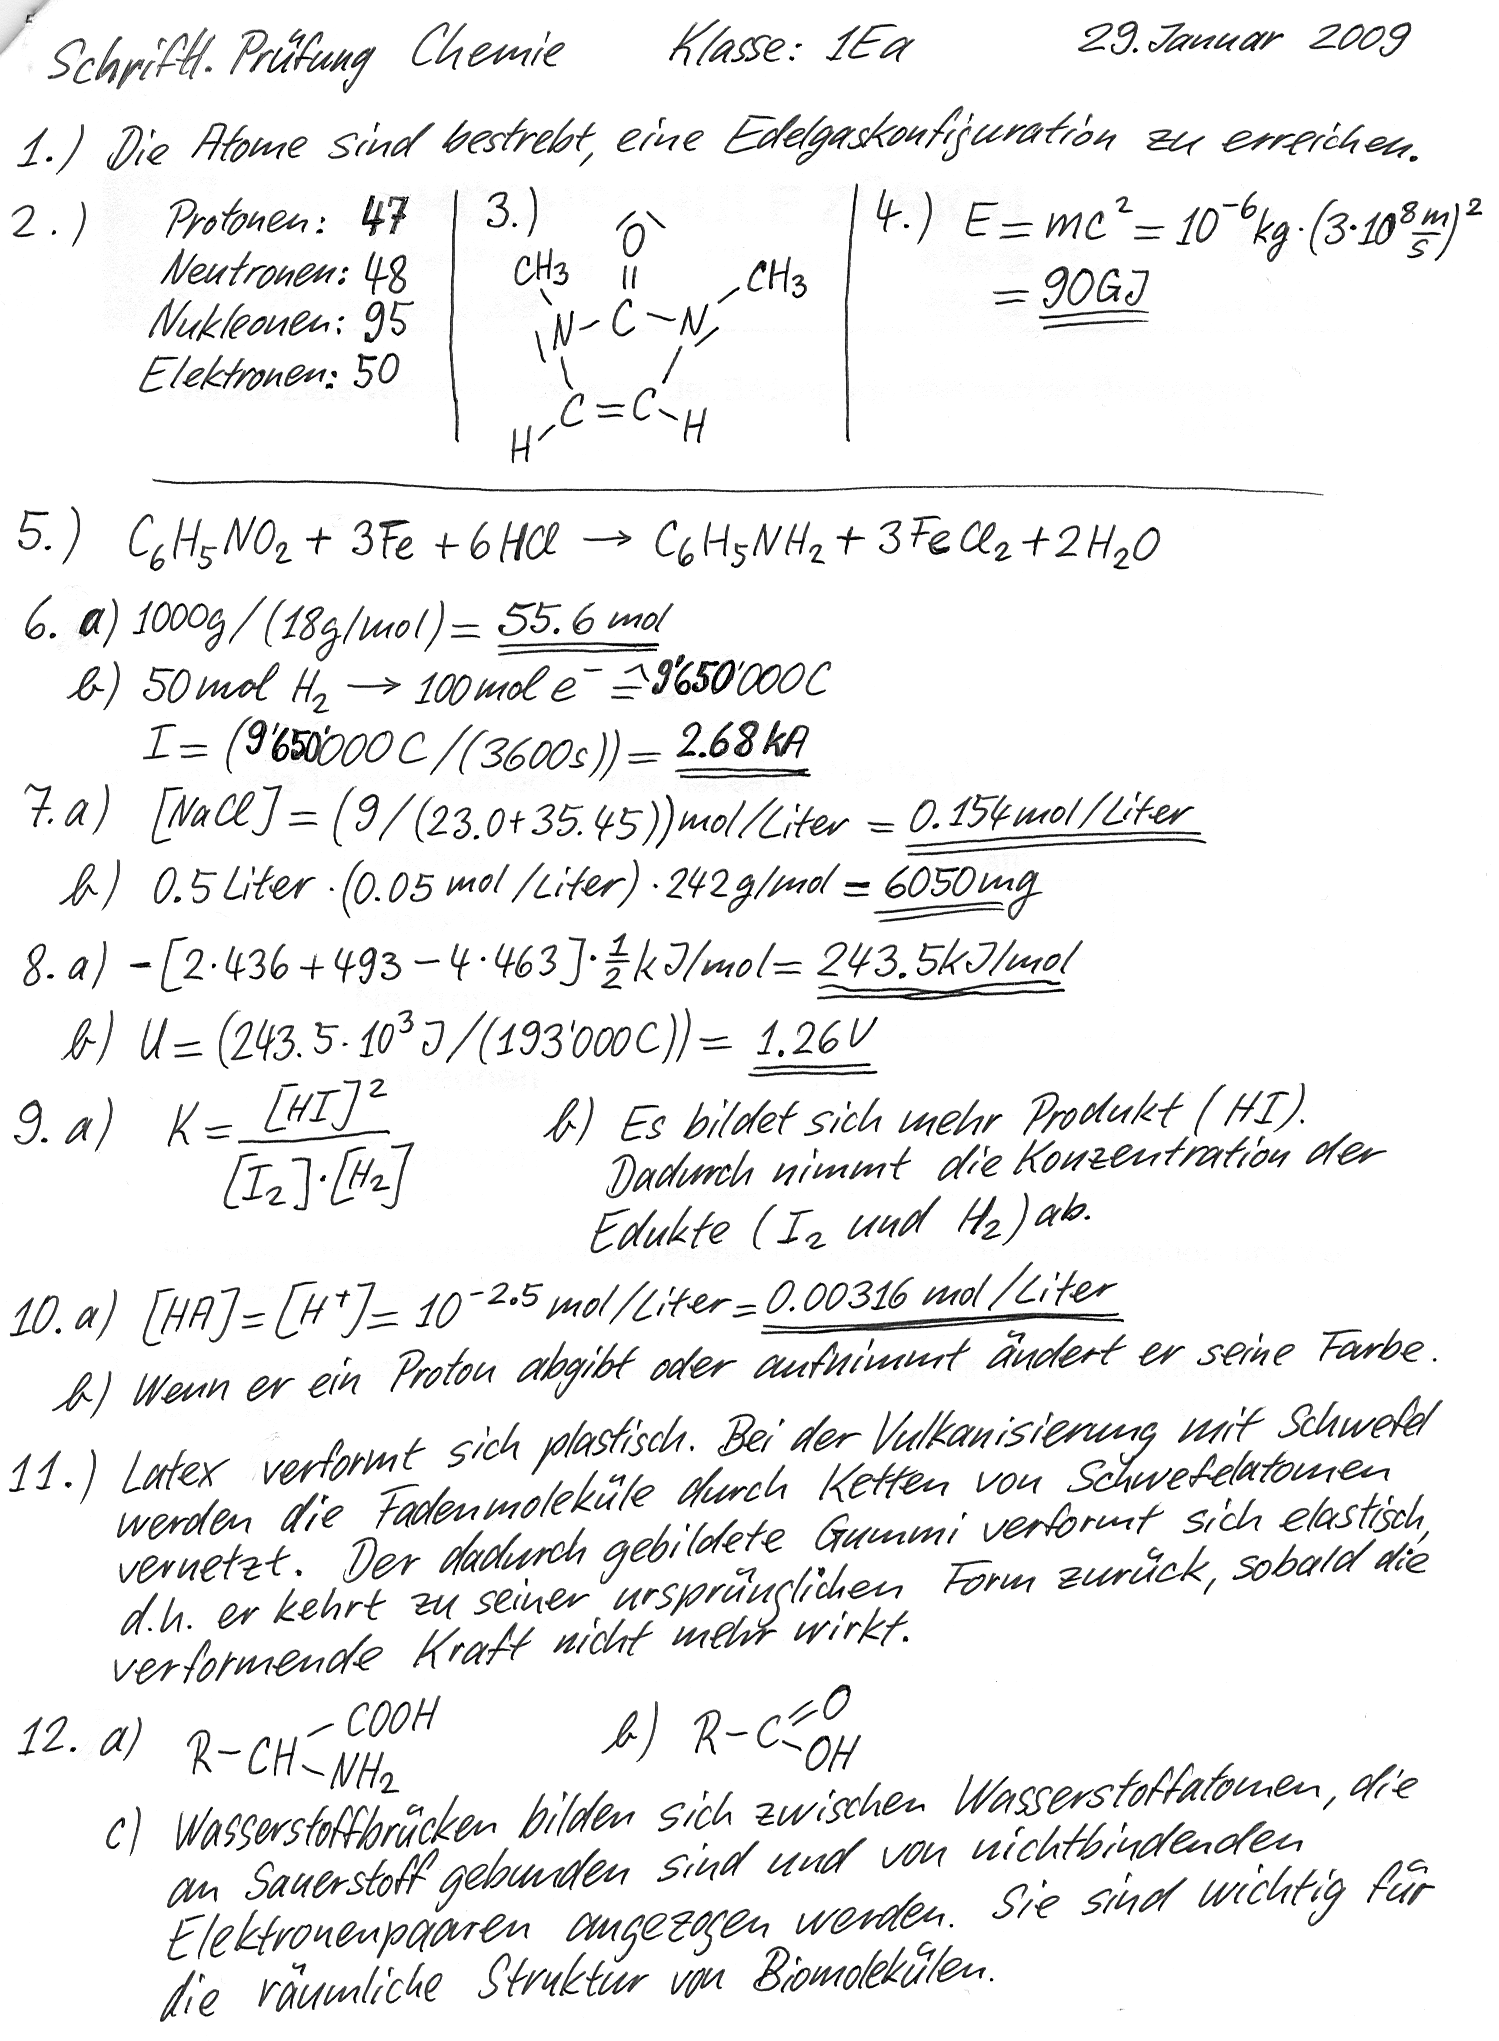 Schriftl. Prüfung Chemie Klasse: 1Ea 29. Januar 2009
1.) Die Atome sind bestrebt, eine Edelgaskonfiguration zu erreichen.
2.) Protonen: 47
Neutronen: 48
Nukleonen: 95
Elektronen: 50
3.)
O
CH3 || CH3
N-C-N
C=C
H H
4.) E = mc² = 10⁻⁶kg·(3·10⁸ m/s)²
= 90GJ
5.) C₆H₅NO₂ + 3Fe + 6HCl → C₆H₅NH₂ + 3FeCl₂ + 2H₂O
6. a) 1000g/(18g/mol) = 55.6 mol
b) 50mol H₂ → 100mol e⁻ ≙ 9'650'000C
I = (9'650'000C/(3600s)) = 2.68kA
7. a) [NaCl] = (9/(23.0+35.45))mol/Liter = 0.154mol/Liter
b) 0.5Liter·(0.05mol/Liter)·242g/mol = 6050mg
8. a) -[2·436+493-4·463]·½kJ/mol = 243.5kJ/mol
b) U = (243.5·10³J/(193'000C)) = 1.26V
9. a) K = [HI]² / [I₂]·[H₂]
b) Es bildet sich mehr Produkt (HI).
Dadurch nimmt die Konzentration der
Edukte (I₂ und H₂) ab.
10. a) [HA] = [H⁺] = 10⁻²·⁵ mol/Liter = 0.00316 mol/Liter
b) Wenn er ein Proton abgibt oder aufnimmt ändert er seine Farbe.
11.) Latex verformt sich plastisch. Bei der Vulkanisierung mit Schwefel
werden die Fadenmoleküle durch Ketten von Schwefelatomen
vernetzt. Der dadurch gebildete Gummi verformt sich elastisch,
d.h. er kehrt zu seiner ursprünglichen Form zurück, sobald die
verformende Kraft nicht mehr wirkt.
12. a) R-CH-COOH
-NH₂
b) R-C=O
-OH
c) Wasserstoffbrücken bilden sich zwischen Wasserstoffatomen, die
an Sauerstoff gebunden sind und von nichtbindenden
Elektronenpaaren angezogen werden. Sie sind wichtig für
die räumliche Struktur von Biomolekülen.